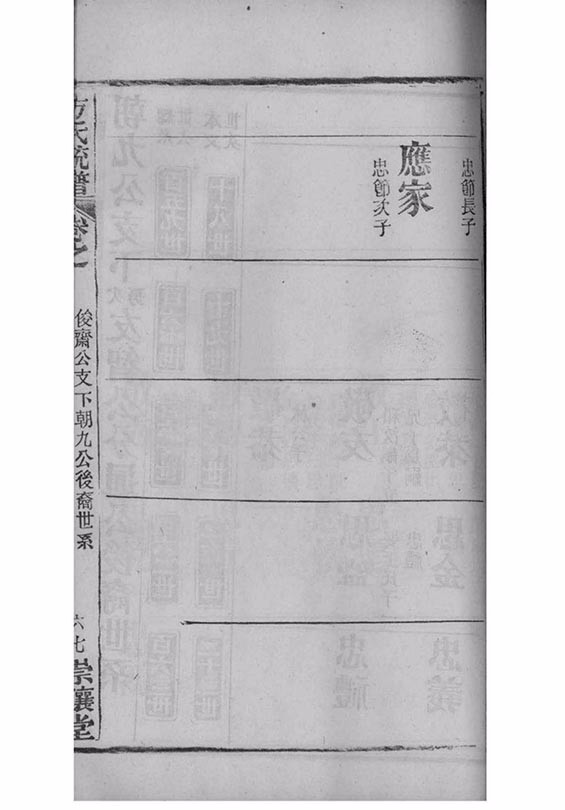 忠節長子
應家
忠節次子
方氏統譜
卷之一
俊齋公支下朝九公後裔世系
六七
崇讓堂